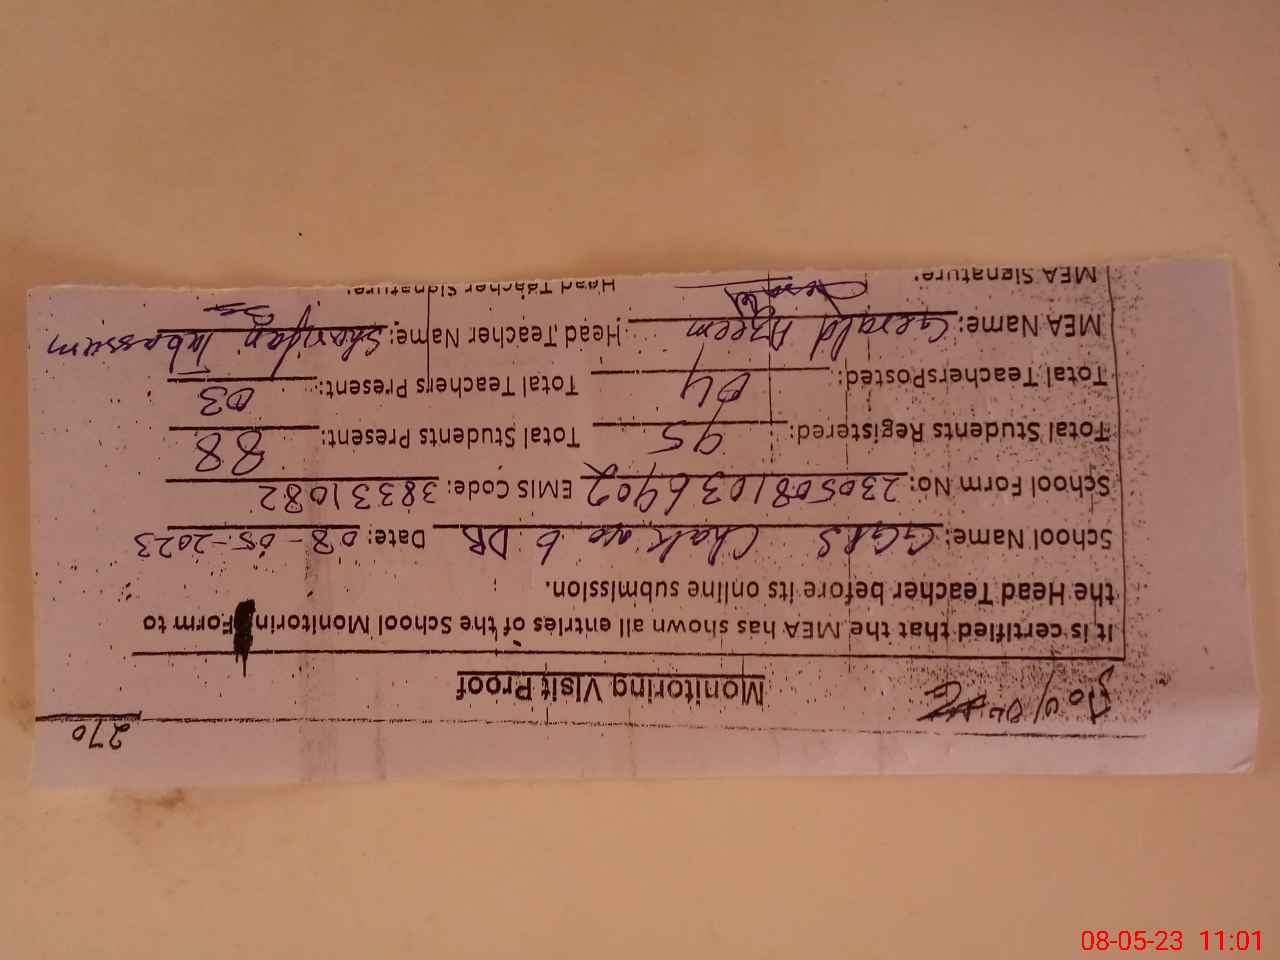 270
Monitoring Visit Proof
It is certified that the MEA has shown all entries of the School Monitoring Form to
the Head Teacher before its online submission.
School Name: GGPS Chak no 6 DB Date: 08-05-2023
School Form No: 2305081036402 EMIS Code: 38331082
Total Students Registered: 95 Total Students Present: 88
Total TeachersPosted: 04 Total Teachers Present: 03
MEA Name: Gerald Azeem Head Teacher Name: Sharifan Tabassum
MEA Signature: Head Teacher Signature:
08-05-23 11:01